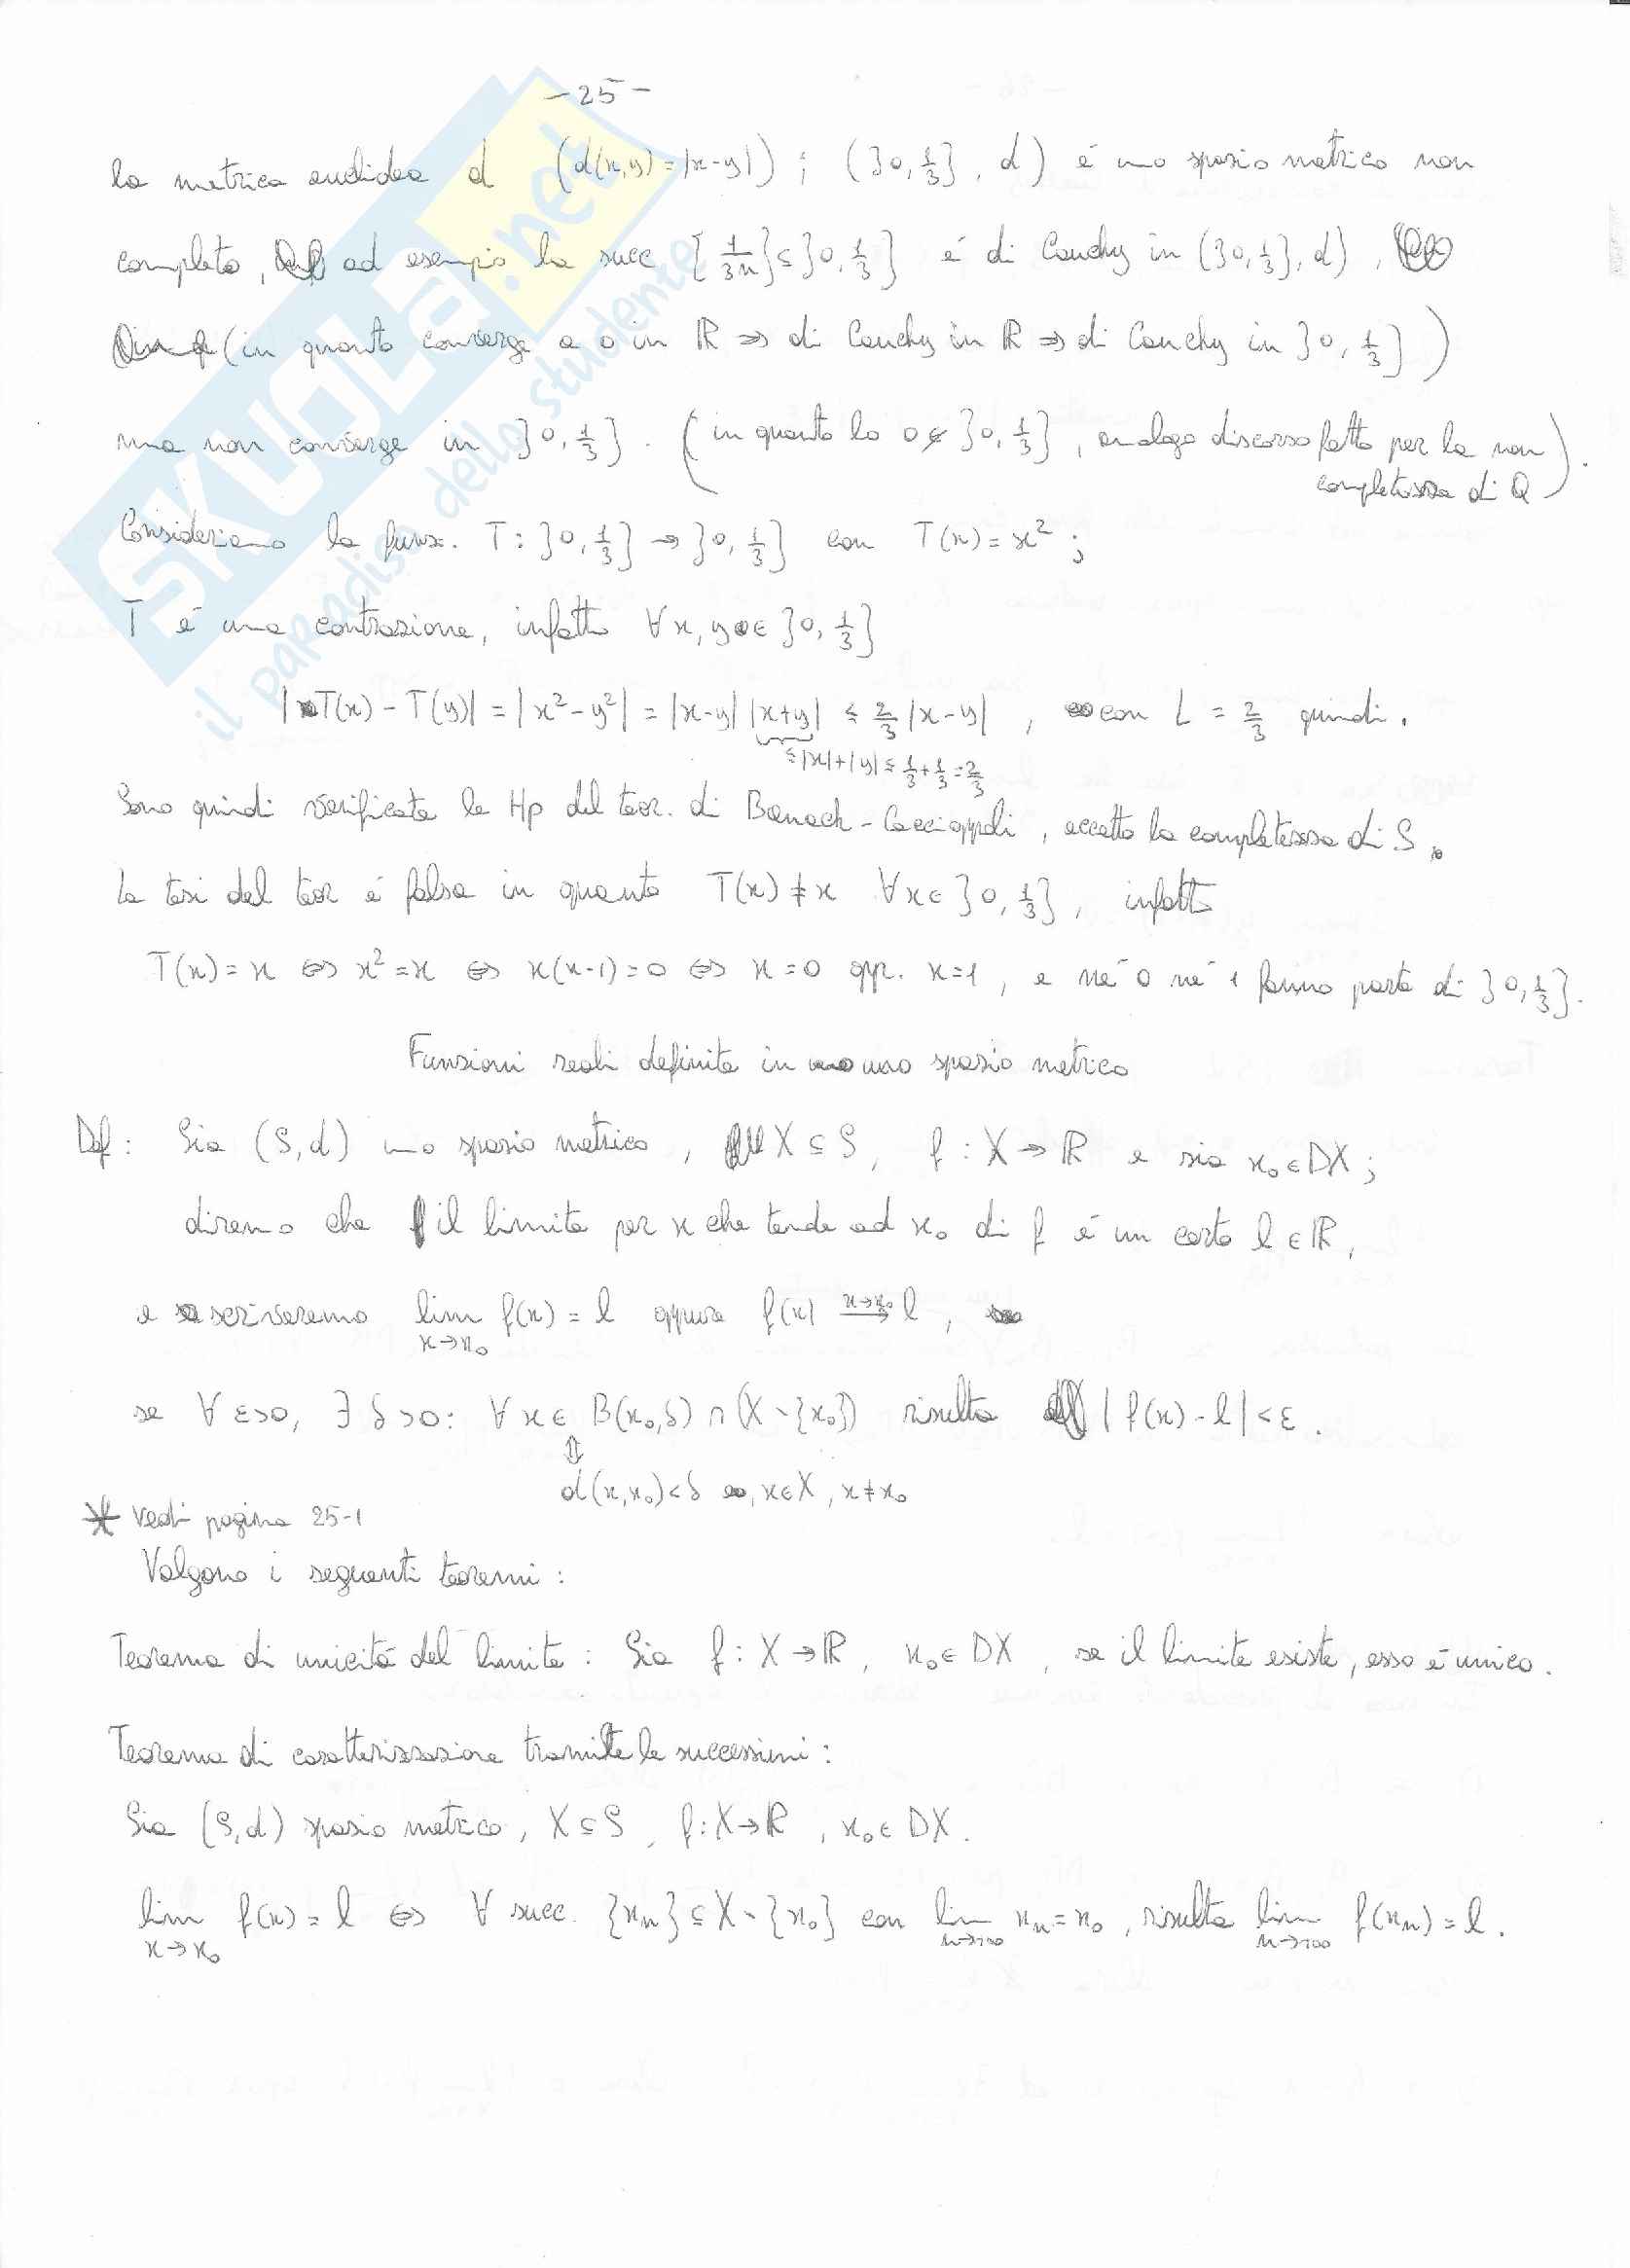 - 25 -
la metrica euclidea d (d(x,y) = |x-y|) ; (]0, 1/3], d) é uno spazio metrico non
completo, ad esempio la succ {1/3n} ⊆ ]0, 1/3] é di Cauchy in (]0, 1/3], d),
(in quanto converge a 0 in ℝ ⇒ di Cauchy in ℝ ⇒ di Cauchy in ]0, 1/3])
ma non converge in ]0, 1/3]. (in quanto lo 0 ∉ ]0, 1/3], analogo discorso fatto per la non
completezza di Q).
Consideriamo la funz. T : ]0, 1/3] → ]0, 1/3] con T(x) = x² ;
T é una contrazione, infatti ∀x, y ∈ ]0, 1/3]
|T(x) - T(y)| = |x² - y²| = |x-y| |x+y| ≤ 2/3 |x-y| , con L = 2/3 quindi.
≤ |x|+|y| ≤ 1/3 + 1/3 = 2/3
Sono quindi verificate le Hp del teor. di Banach-Caccioppoli, eccetto la completezza di S.
La tesi del teor é falsa in quanto T(x) ≠ x ∀x ∈ ]0, 1/3], infatti
T(x) = x ⇔ x² = x ⇔ x(x-1) = 0 ⇔ x = 0 opp. x = 1, e né 0 né 1 fanno parte di ]0, 1/3].
Funzioni reali definite in uno spazio metrico
Def : Sia (S,d) uno spazio metrico, X ⊆ S, f : X → ℝ e sia x₀ ∈ DX ;
diremo che il limite per x che tende ad x₀ di f é un certo l ∈ ℝ,
e scriveremo lim x→x₀ f(x) = l oppure f(x) x→x₀ → l ,
se ∀ ε>0, ∃ δ>0 : ∀ x ∈ B(x₀,δ) ∩ (X \ {x₀}) risulta |f(x) - l| < ε .
⇕
d(x,x₀) < δ , x ∈ X, x ≠ x₀
* Vedi pagina 25-1
Valgono i seguenti teoremi :
Teorema di unicitá del limite : Sia f : X → ℝ , x₀ ∈ DX , se il limite esiste, esso é unico .
Teorema di caratterizzazione tramite le successioni :
Sia (S,d) spazio metrico, X ⊆ S, f : X → ℝ , x₀ ∈ DX .
lim x→x₀ f(x) = l ⇔ ∀ succ. {xₙ} ⊆ X \ {x₀} con lim n→+∞ xₙ = x₀ , risulta lim n→+∞ f(xₙ) = l .
SKUOLA.net
il paradiso dello studente